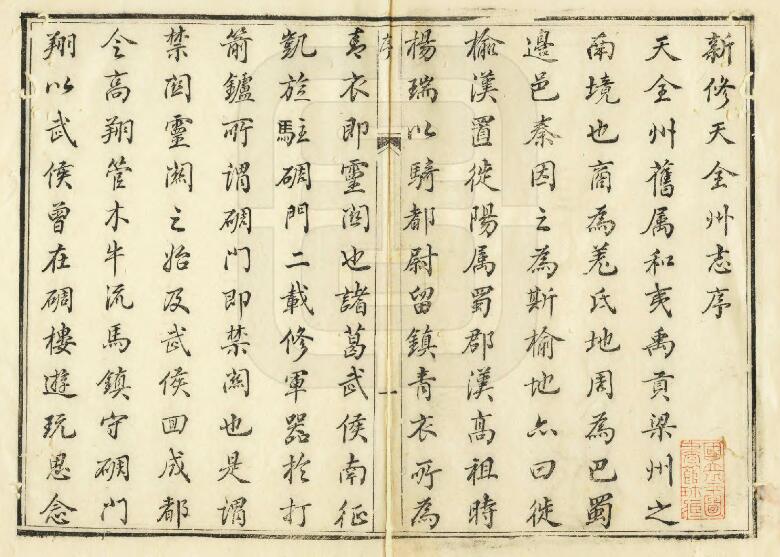 新修天全州志序
天全州舊属和夷禹貢梁州之
南境也商為羌氐地周為巴蜀
邊邑秦因之為斯榆地亦曰徙
榆漢置徙陽属蜀郡漢高祖時
楊瑞以騎都尉留鎮青衣所為
序
一
青衣即靈関也諸葛武侯南征
凱旋駐碉門二載修軍器於打
箭鑪所謂碉門即禁關也是謂
禁関靈關之始及武侯囬成都
令高翔管木牛流馬鎮守碉門
翔以武侯曾在碉樓遊玩思念